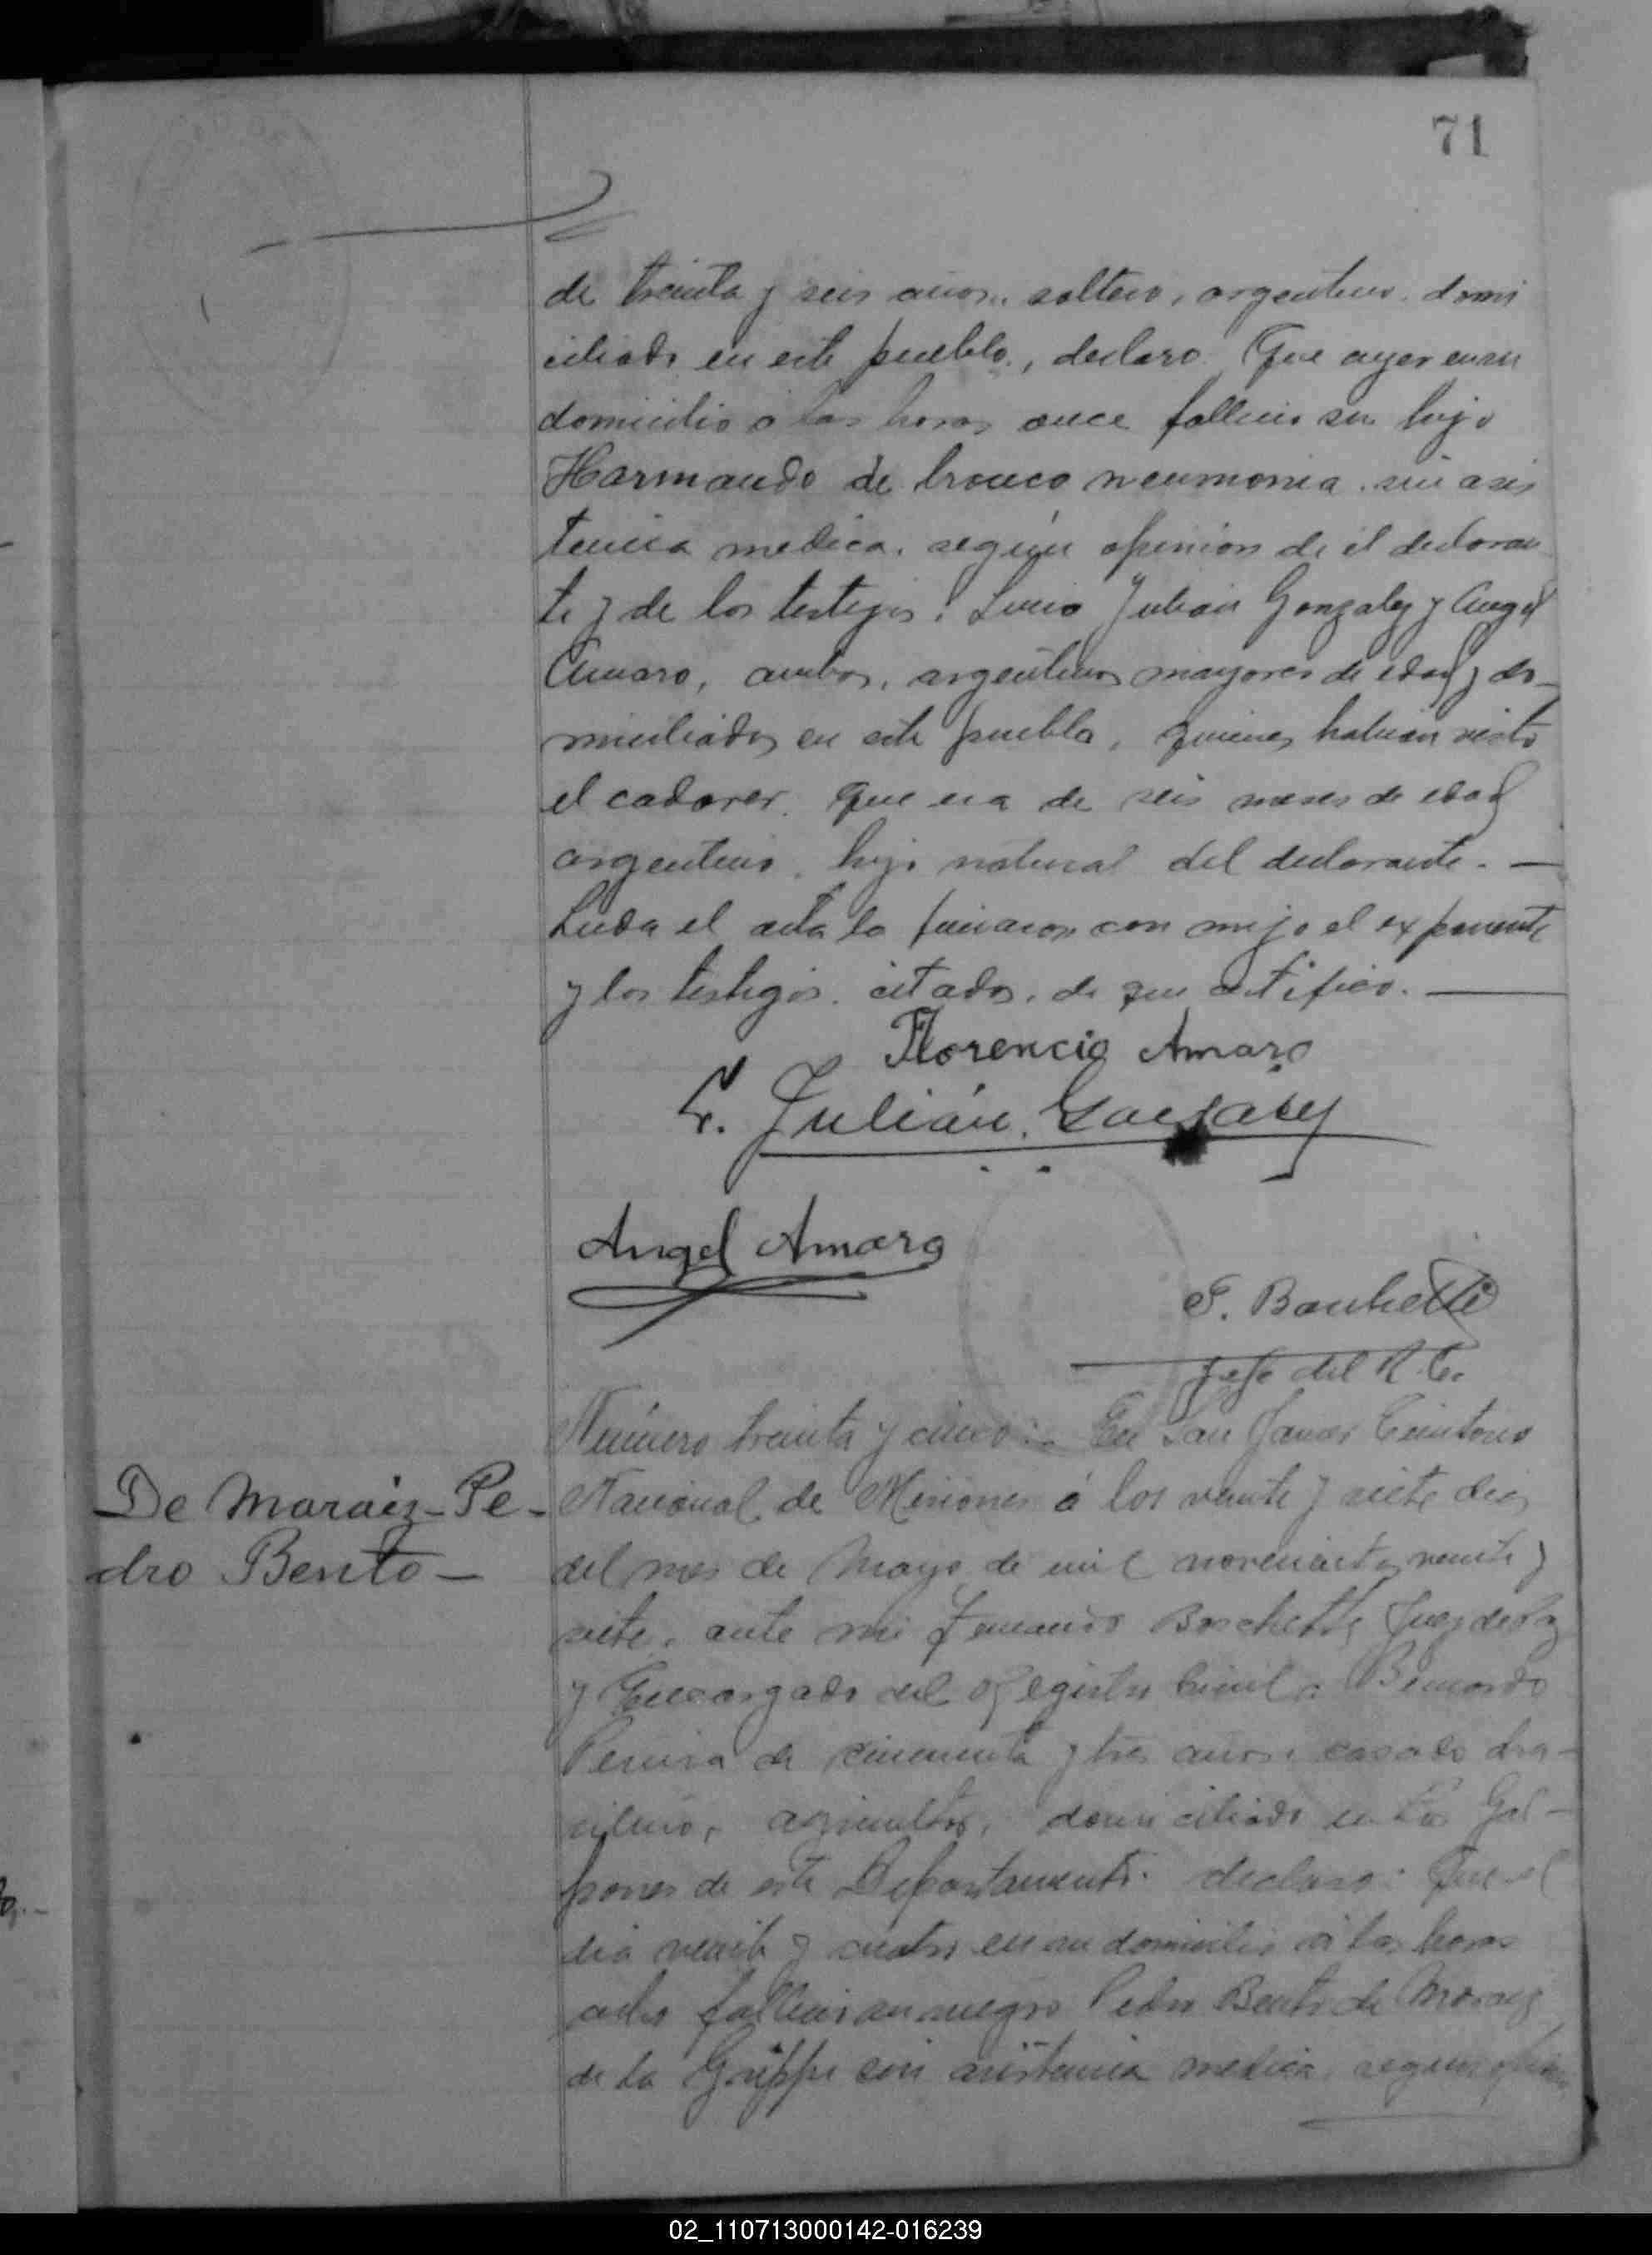 71
de treinta y seis años, soltero, argentino, domi
ciliado en este pueblo, declaro: Que ayer en su
domicilio á las horas once fallecio su hijo
Harmando de bronco neumonia, sin asis
tencia medica, según opinion de el declaran
te y de los testigos: Lucio Julian Gonzalez y Angel
Amaro, ambos, argentinos mayores de edad y do-
miciliados en este pueblo, quienes habian visto
el cadaver. Que era de seis meses de edad
argentino, hijo natural del declarante. —
Leida el acta la firmaron con migo el exponente
y los testigos citados, de que certifico. —
Florencio Amaro
L. Julián Gonzalez
Angel Amaro
F. Banchetti
Jefe del R. C.
Número treinta y cinco: En San Javier Territorio
De Maraiz-Pe-
dro Bento-
Nacional de Misiones á los veinte y siete dias
del mes de Mayo de mil novecientos veinte y
siete, ante mi Banchetti Juez de Paz
y Encargado del Registro Civil, Bernardo
Pereira de cincuenta y tres años, casado bra-
silero, agricultor, domiciliado en Gal-
pones de este Departamento. declaro: Que el
dia veinte y cuatro en su domicilio á las horas
ocho fallecio su suegro Pedro Bento de Moraez
de la Grippe sin asistencia medica, segun
02_110713000142-016239